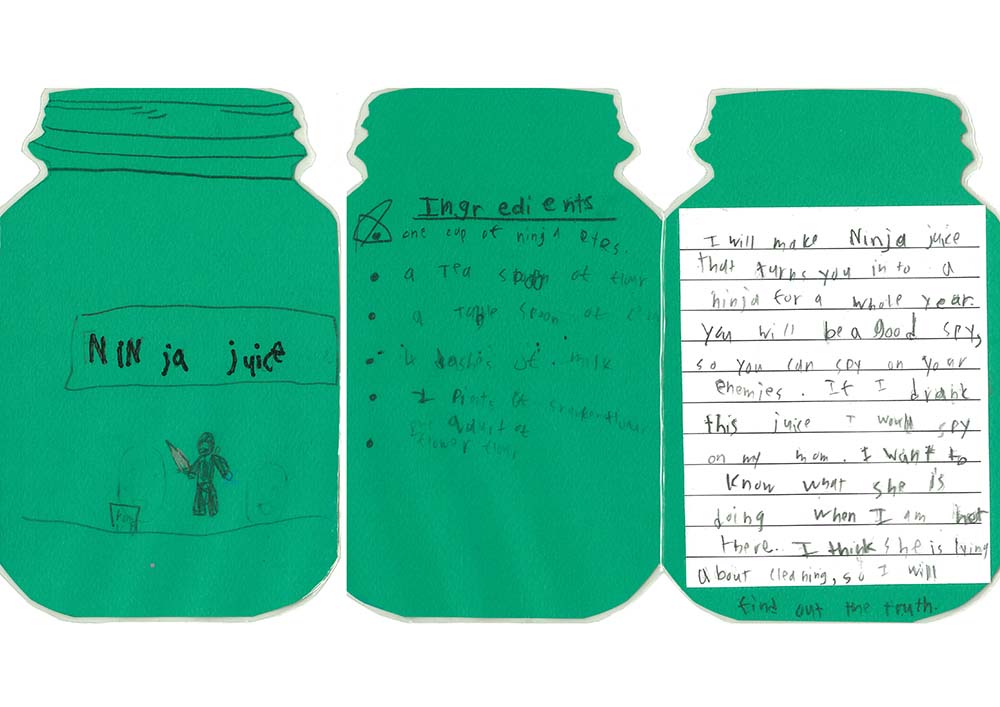 NINja juice
Ingredients
one cup of ninja
a Tea spoon of flour
a Table spoon of
dashis of milk
Pints of
flower flour
I will make Ninja juice
that turns you in to a
ninja for a whole year.
you will be a good spy,
so you can spy on your
enemies. If I drank
this juice I would spy
on my mom. I want to
know what she is
doing when I am not
there. I think she is lying
about cleaning, so I will
find out the truth.